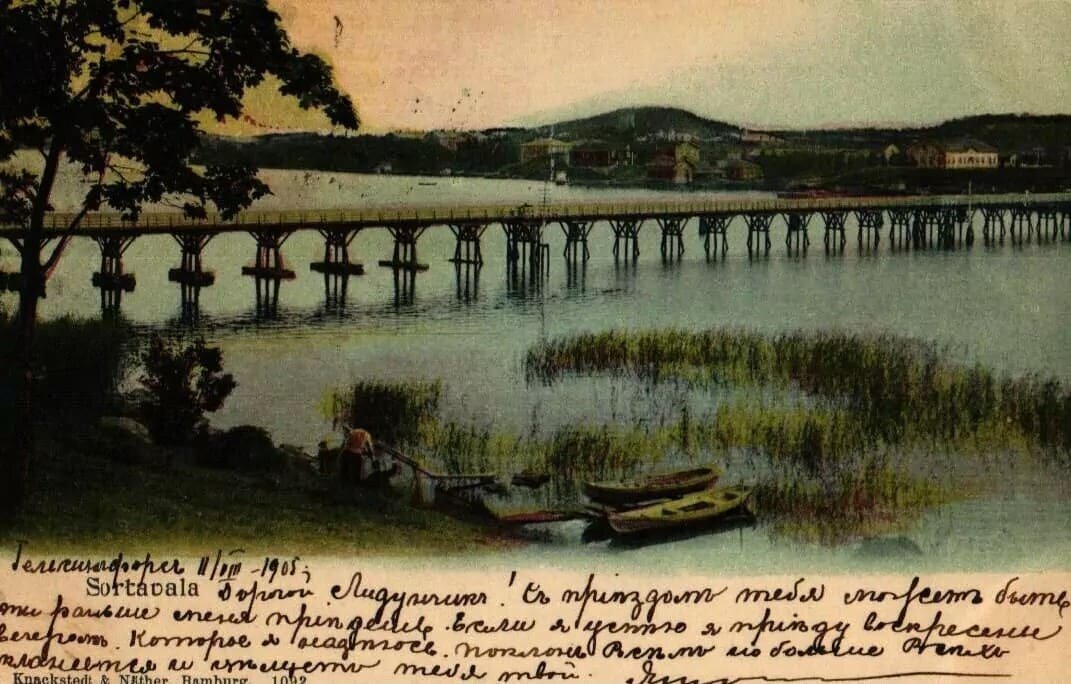 Гельсингфорсъ 11/VIII - 1905 г
Sortavala
Дорогой Лидунчикъ! Съ пріѣздомъ тебя можетъ быть
ты раньше меня пріѣдешь. Если я успѣю я пріѣду воскресеніе
вечеромъ. Которое я надѣюсь. Поклонъ Всѣмъ но больше Всѣхъ
кланяется и цѣлуетъ тебя твой.
Knackstedt & Näther, Hamburg. 1092